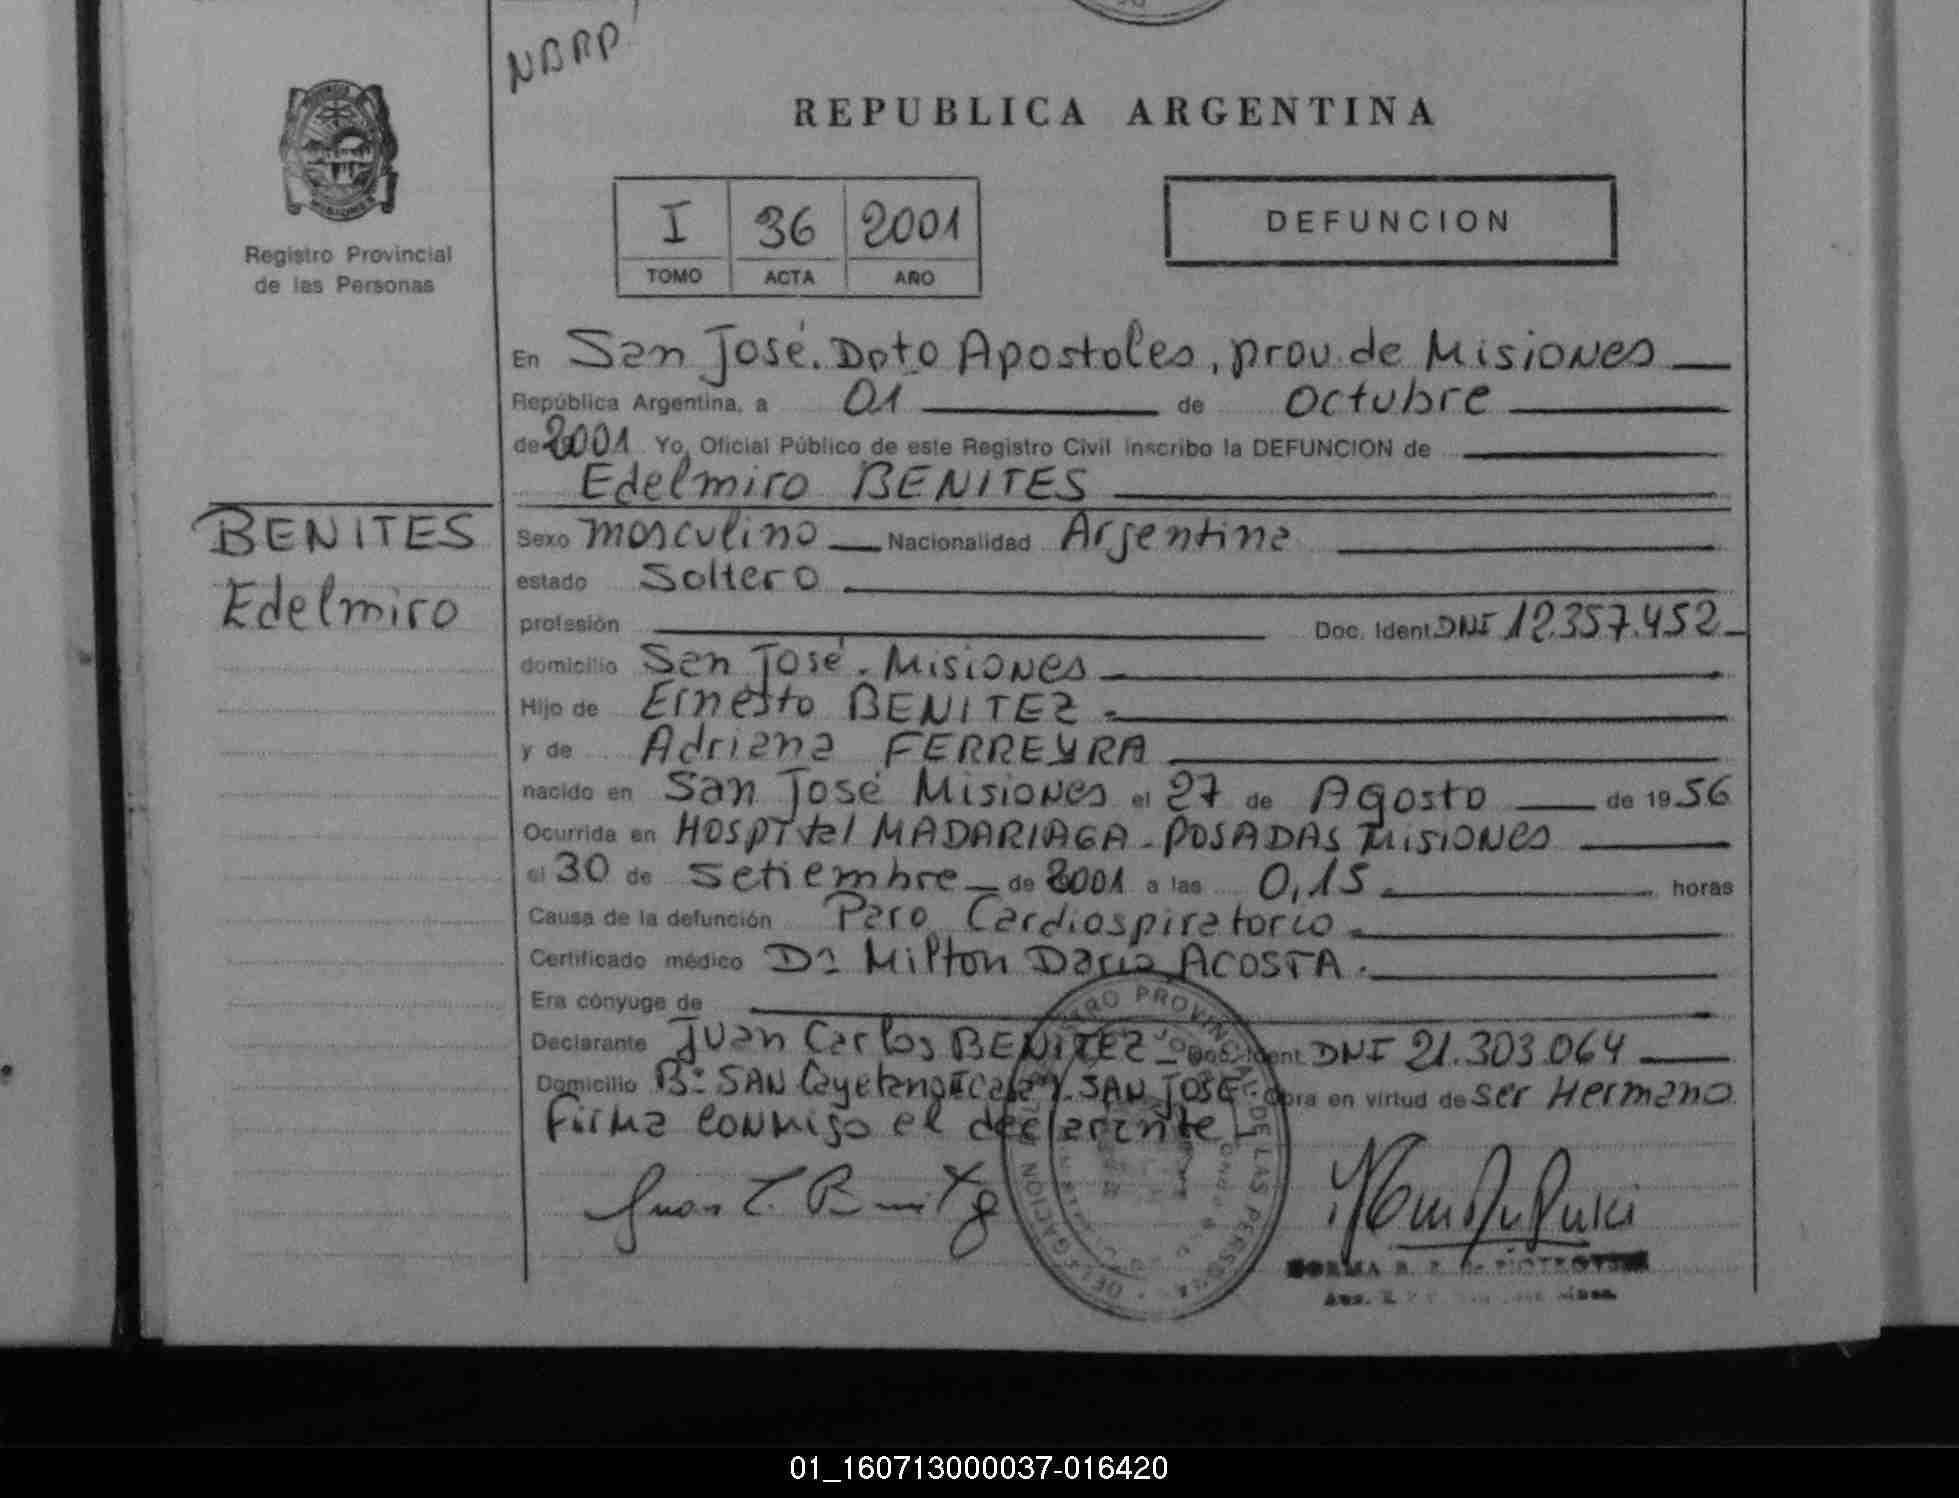 NBRP
REPUBLICA ARGENTINA
MISIONES
Registro Provincial
de las Personas
I 36 2001
TOMO ACTA AÑO
DEFUNCION
En San José. Dpto Apostoles, prov. de Misiones
República Argentina, a 01 de Octubre
de 2001 Yo, Oficial Público de este Registro Civil inscribo la DEFUNCION de
Edelmiro BENITES
BENITES
Edelmiro
Sexo masculino Nacionalidad Argentina
estado Soltero
profesión Doc. Ident DNI 12.357.452
domicilio San José. Misiones
Hijo de Ernesto BENITEZ
y de Adriana FERREYRA
nacido en San José Misiones el 27 de Agosto de 1956
Ocurrida en Hospital MADARIAGA - POSADAS Misiones
el 30 de Setiembre de 2001 a las 0,15 horas
Causa de la defunción Paro Cardiospiratorio
Certificado médico Dr Milton Dario ACOSTA.
Era cónyuge de
Declarante Juan Carlos BENITEZ Doc. Ident DNI 21.303.064
Domicilio Bº SAN Cayetano SAN JOSE. Obra en virtud de ser Hermano
Firma conmigo el declarante
Juan C. Benitez
REGISTRO PROVINCIAL DE LAS PERSONAS
DELEGACION
NORMA
01_160713000037-016420